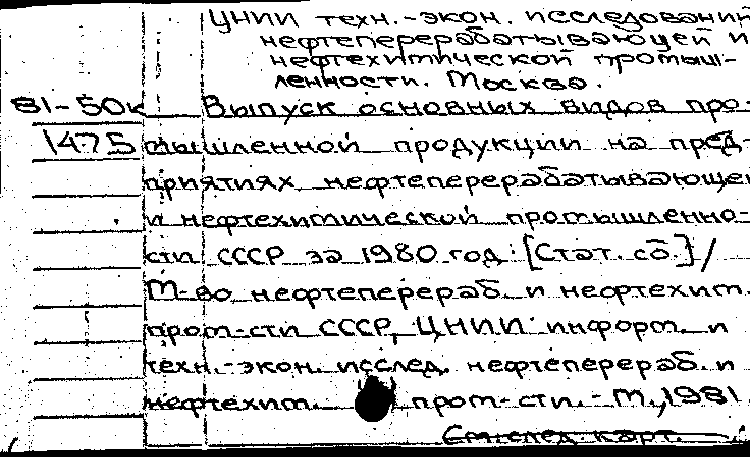 ЦНИИ техн.-экон. исследований
нефтеперерабатывающей и
нефтехимической промыш-
ленности. Москва.
81-50к Выпуск основных видов про-
1475 мышленной продукции на пред-
приятиях нефтеперерабатывающей
и нефтехимической промышленно-
сти СССР за 1980 год: [Стат. сб.]/
М-во нефтеперераб. и нефтехим.
пром-сти СССР, ЦНИИ информ. и
техн.-экон. исслед. нефтеперераб. и
нефтехим. пром-сти. - М., 1981.
См. след. карт.